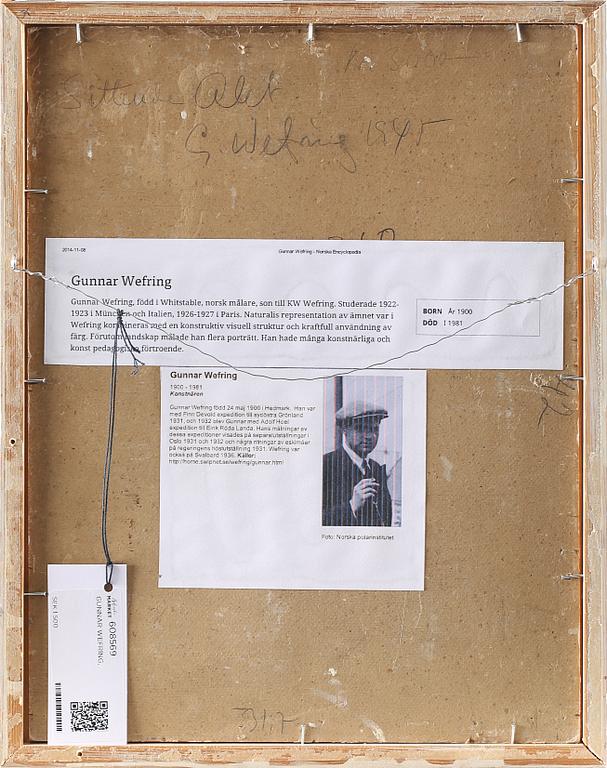 G. Wefring 1945
2014-11-08 Gunnar Wefring - Norske Encyclopedia
Gunnar Wefring
Gunnar Wefring, född i Whitstable, norsk målare, son till KW Wefring. Studerade 1922-
1923 i München och Italien, 1926-1927 i Paris. Naturalis representation av ämnet var i
Wefring kombineras med en konstruktiv visuell struktur och kraftfull användning av
färg. Förutom landskap målade han flera porträtt. Han hade många konstnärliga och
konst pedagogiska förtroende.
BORN År 1900
DÖD I 1981
Gunnar Wefring
1900 - 1981
Konstnären
Gunnar Wefring född 24 maj 1900 i Hedmark. Han var
med Finn Devold expedition till sydöstra Grönland
1931, och 1932 blev Gunnar med Adolf Hoel
expedition till Eirik Röda Landa. Hans målningar av
dessa expeditioner visades på separatutställningar i
Oslo 1931 och 1932 och några ritningar av eskimåer
på regeringens höstutställning 1931. Wefring var
också på Svalbard 1936. Källor:
http://home.swipnet.se/wefring/gunnar.html
Foto: Norska polarinstitutet
MÄRKET 608569
GUNNAR WEFRING.
SEK 1 500